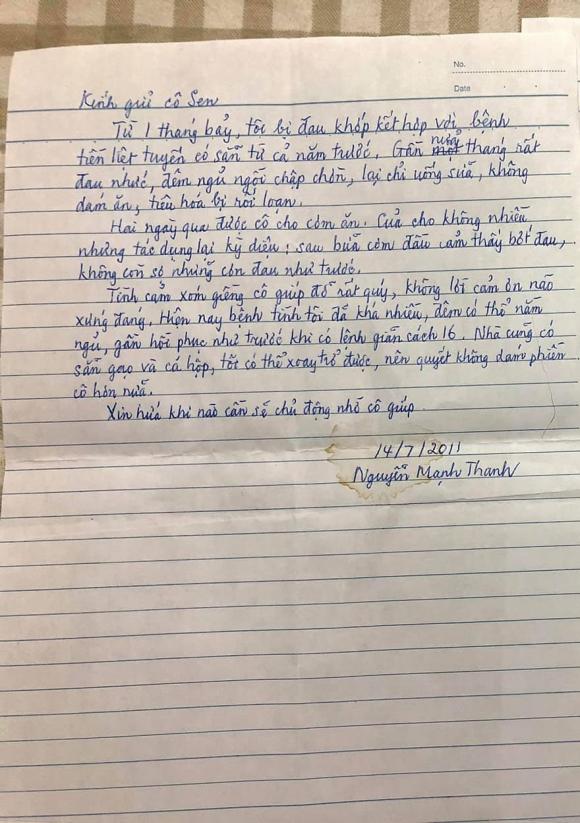 No.
Date
Kính gửi cô Sen
Từ 1 tháng bảy, tôi bị đau khớp kết hợp với bệnh
tiền liệt tuyến có sẵn từ cả năm trước. Gần nửa tháng rất
đau nhức, đêm ngủ ngồi chập chờn, lại chỉ uống sữa, không
dám ăn, tiêu hóa bị rối loạn.
Hai ngày qua được cô cho cơm ăn. Của cho không nhiều
nhưng tác dụng lại kỳ diệu: sau bữa cơm đầu cảm thấy bớt đau,
không còn sợ những cơn đau như trước.
Tình cảm xóm giềng cô giúp đỡ rất quý, không lời cảm ơn nào
xứng đáng. Hiện nay bệnh tình tôi đã khá nhiều, đêm có thể nằm
ngủ, gần hồi phục như trước khi có lệnh giãn cách 16. Nhà cũng có
sẵn gạo và cá hộp, tôi có thể xoay trở được, nên quyết không dám phiền
cô hơn nữa.
Xin hứa khi nào cần sẽ chủ động nhờ cô giúp.
14/7/2011
Nguyễn Mạnh Thanh